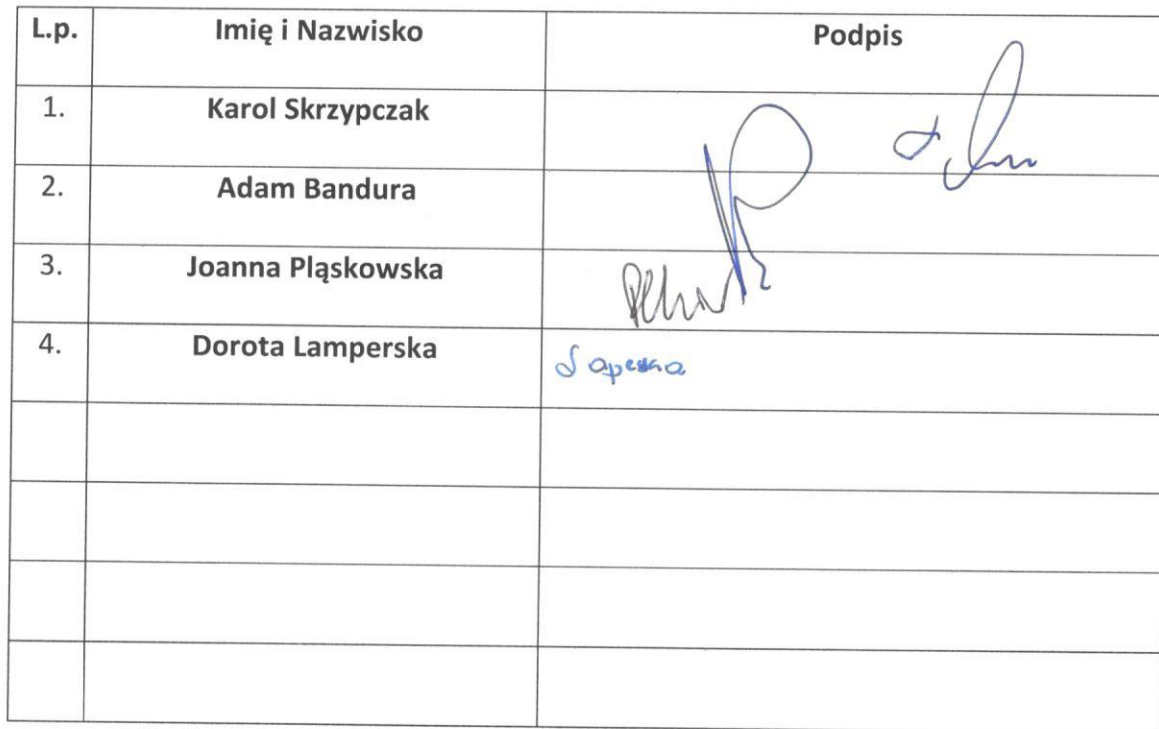 L.p. Imię i Nazwisko Podpis
1. Karol Skrzypczak
2. Adam Bandura
3. Joanna Pląskowska
4. Dorota Lamperska